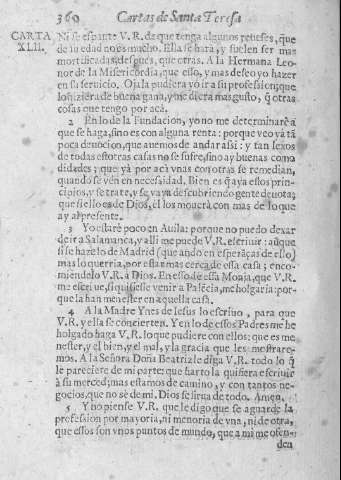 360 Cartas de Santa Teresa
CARTA
XLII.
Ni se espante V.R. de que tenga algunos reueses, que
de su edad no es mucho. Ella se hará, y suelen ser mas
mortificadas, despues, que otras. A la Hermana Leo-
nor de la Misericordia, que esso, y mas deseo yo hazer
en su seruicio. Ojala pudiera yo ir a su profession, que
lo hiziera de buena gana, y me diera mas gusto, q̃ otras
cosas que tengo por acà.
2 En lo de la Fundacion, yo no me determinarè a
que se haga, sino es con alguna renta: porque veo yà tã
poca deuocion, que auemos de andar assi: y tan lexos
de todas estotras casas no se sufre, sino ay buenas como
didades; que yà por acà vnas con otras se remedian,
quando se vén en necessidad. Bien es q̃ aya estos prin-
cipios, y se trate, y se vaya descubriendo gente deuota;
que si ello es de Dios, èl los mouerà con mas de lo que
ay al presente.
3 Yo estarè poco en Auila: porque no puedo dexar
de ir a Salamanca, y alli me puede V.R. escriuir: aũque
si se haze lo de Madrid (que ando en esperãças de ello)
mas lo querria, por estar mas cerca de essa casa; enco-
miendelo V.R. à Dios. En esso de essa Monja, que V.R.
me escriue, si quisiesse venir a Palẽcia, me holgaria: por-
que la han menester en aquella casa.
4 A la Madre Ynes de Iesus lo escriuo, para que
V.R. y ella se concierten. Y en lo de essos Padres me he
holgado haga V.R. lo que pudiere con ellos; que es me
nester, y el bien, y el mal, y la gracia que les mostrare-
mos. A la Señora Doña Beatriz le diga V.R. todo lo q̃
le pareciere de mi parte: que harto la quisiera escriuir
à su merced; mas estamos de camino, y con tantos ne-
gocios, que no sè de mi. Dios se sirua de todo. Amen.
5 Y no piense V.R. que le digo que se aguarde la
profession por mayoria, ni menoria de vna, ni de otra,
que essos son vnos puntos de mundo, que a mi me ofen-
den